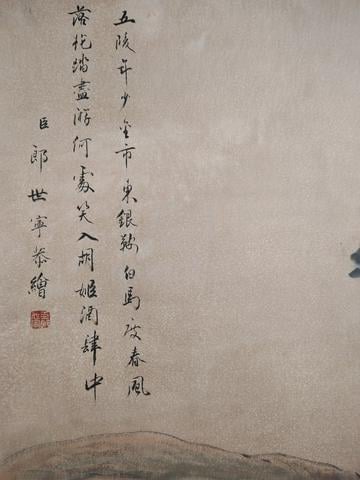 五陵年少金市東銀鞍白馬度春風
落花踏盡游何處笑入胡姬酒肆中
臣郎世寧恭繪